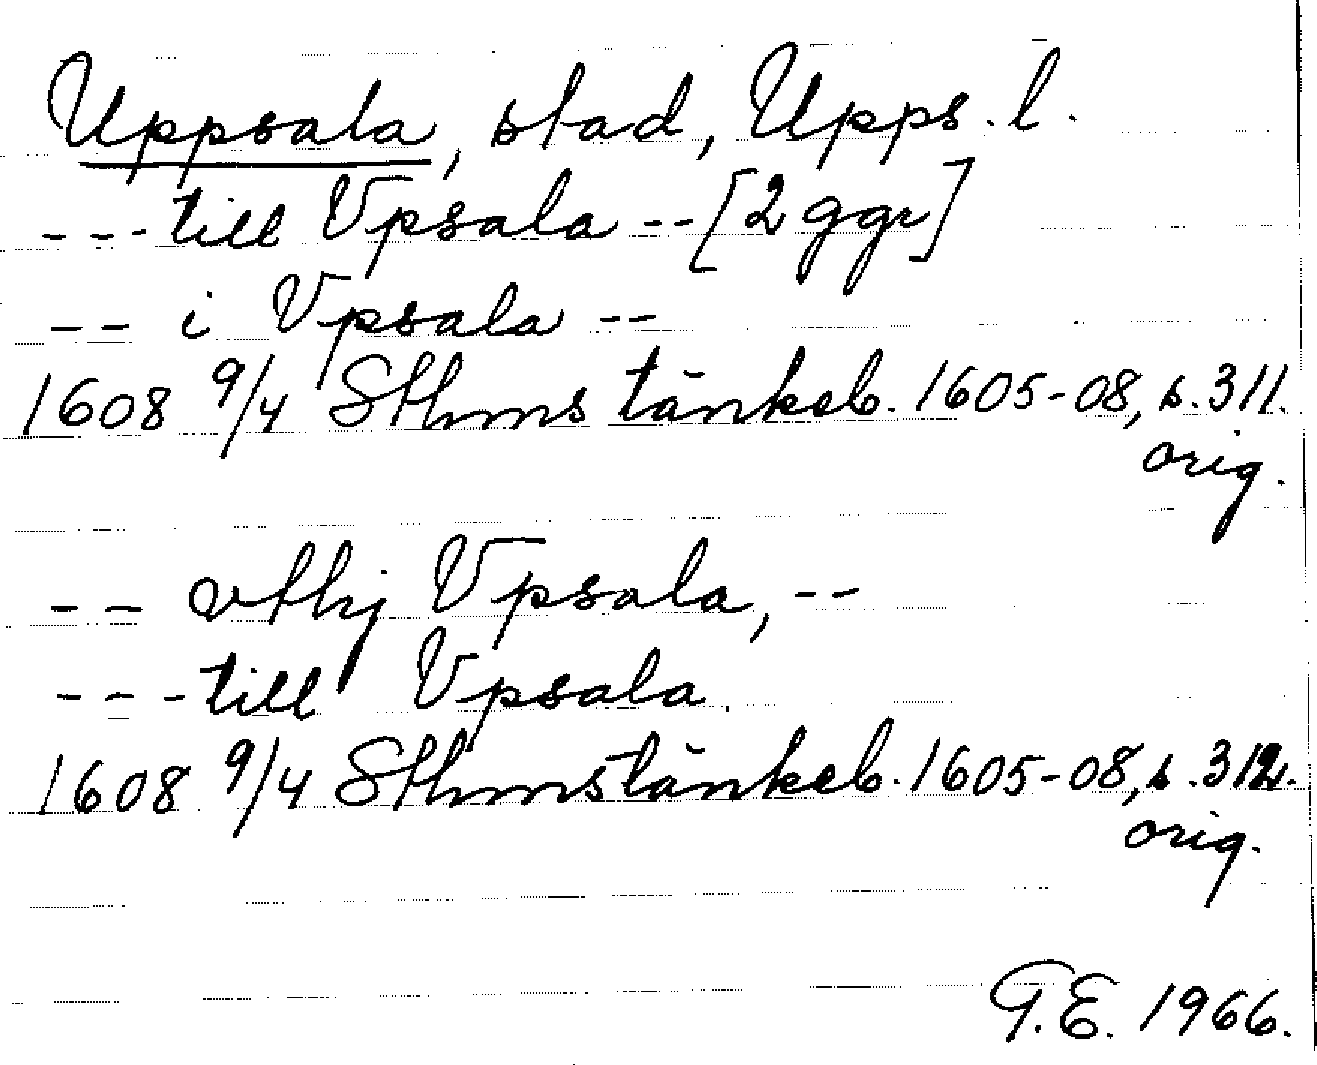 Uppsala, stad, Upps. l.
--- till Vpsala -- [2 ggr]
-- i Vpsala --
1608 9/4 Sthms tänkeb. 1605-08, s. 311.
orig.
-- vthj Vpsala, --
--- till Vpsala.
1608 9/4 Sthms tänkeb. 1605-08, s. 312.
orig.
G.E. 1966.